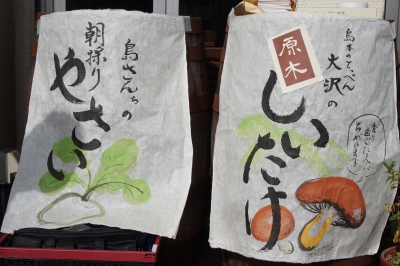 島さんちの
朝採り
やさい
島本のてっぺん
大沢の
原木
しいたけ